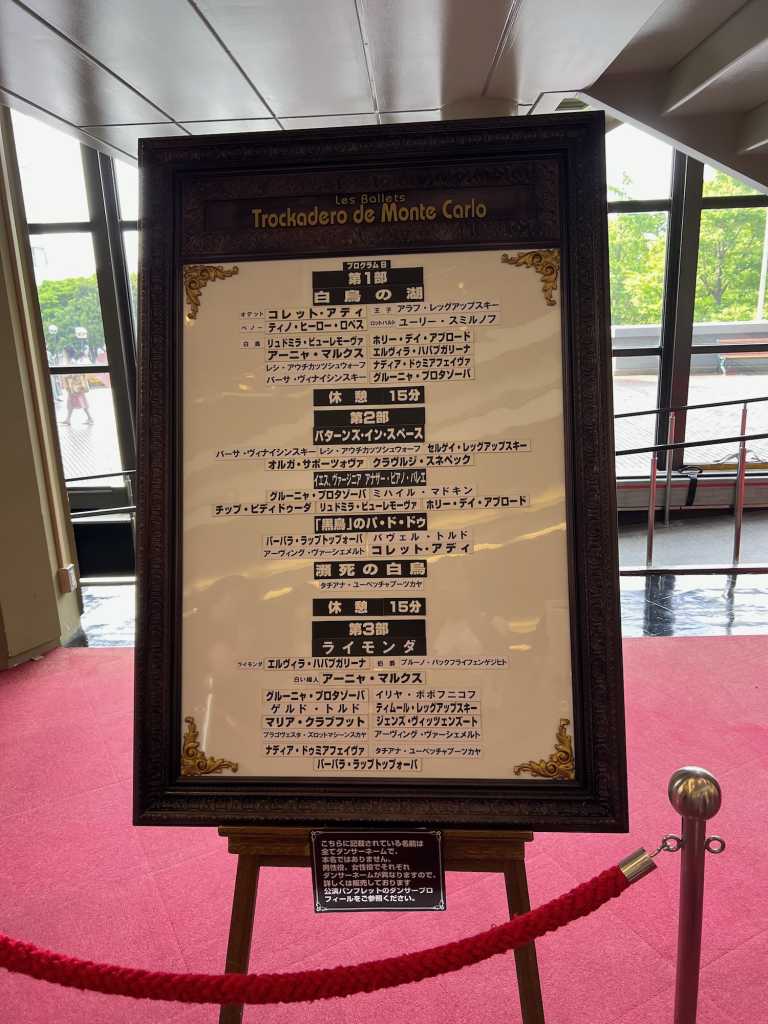 Les Ballets
Trockadero de Monte Carlo
プログラム B
第1部
白鳥の湖
オデット コレット・アディ 王子 アラフ・レッグアップスキー
ベノー ティノ・ヒーロー・ロペス ロットバルト ユーリー・スミルノフ
白鳥 リュドミラ・ビューレモーヴァ ホリー・デイ・アブロード
アーニャ・マルクス エルヴィラ・ハバブガリーナ
レシ・アウチカッツシュウォーフ ナディア・ドゥミアフェイヴァ
バーサ・ヴィナイシンスキー グルーニャ・プロタゾーバ
休憩 15分
第2部
パターンズ・イン・スペース
バーサ・ヴィナイシンスキー レシ・アウチカッツシュウォーフ セルゲイ・レッグアップスキー
オルガ・サポーツォヴァ クラヴルジ・スネペック
イエス, ヴァージニア アナザー・ピアノ・バレエ
グルーニャ・プロタゾーバ ミハイル・マドキン
チップ・ピディドゥーダ リュドミラ・ビューレモーヴァ ホリー・デイ・アブロード
「黒鳥」のパ・ド・ドゥ
バーバラ・ラップトップォーバ パヴェル・トルド
アーヴィング・ヴァーシェメルト コレット・アディ
瀕死の白鳥
タチアナ・ユーベッチャブーツカヤ
休憩 15分
第3部
ライモンダ
ライモンダ エルヴィラ・ハバブガリーナ 伯爵 ブルーノ・バックフライフェンゲジヒト
白い婦人 アーニャ・マルクス
グルーニャ・プロタゾーバ イリヤ・ボボフニコフ
ゲルド・トルド ティムール・レッグアップスキー
マリア・クラブフット ジェンズ・ヴィッツェンズート
ブラゴヴェスタ・ズロットマシーンスカヤ アーヴィング・ヴァーシェメルト
ナディア・ドゥミアフェイヴァ タチアナ・ユーベッチャブーツカヤ
バーバラ・ラップトップォーバ
こちらに記載されている名前は
全てダンサーネームで、
本名ではありません。
男性役、女性役でそれぞれ
ダンサーネームが異なりますので、
詳しくは販売しております
公演パンフレットのダンサープロ
フィールをご参照ください。